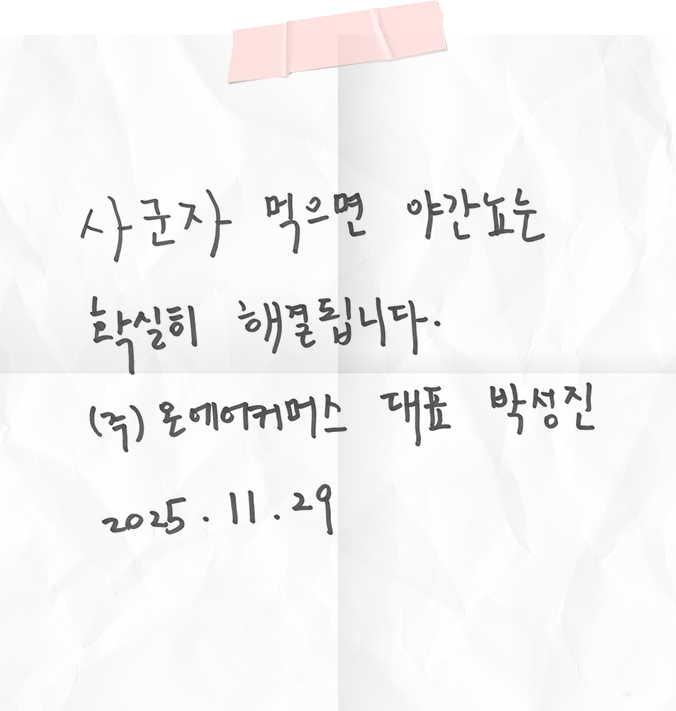 사군자 먹으면 야간뇨는
확실히 해결됩니다.
(주)온에어커머스 대표 박성진
2025.11.29